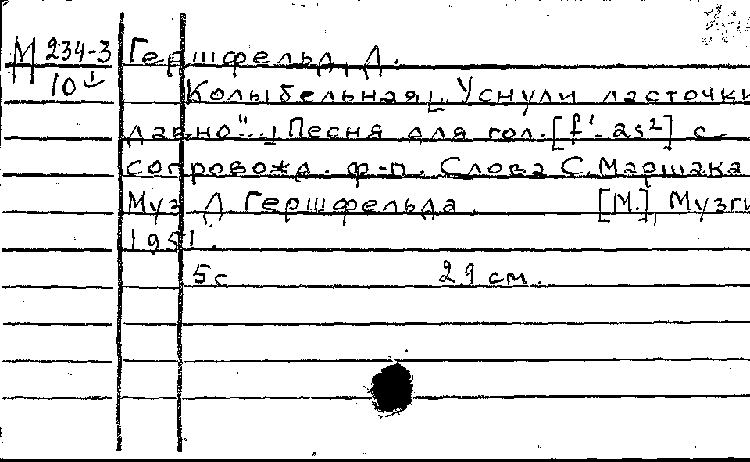 М 234-3
10
Гершфельд, Д.
Колыбельная "Уснули ласточки
давно"... Песня для гол. [f¹-as²] с
сопровожд. ф-п. Слова С. Маршака
Муз Д Гершфельда. [М.], Музги
1951.
5с 29 см.